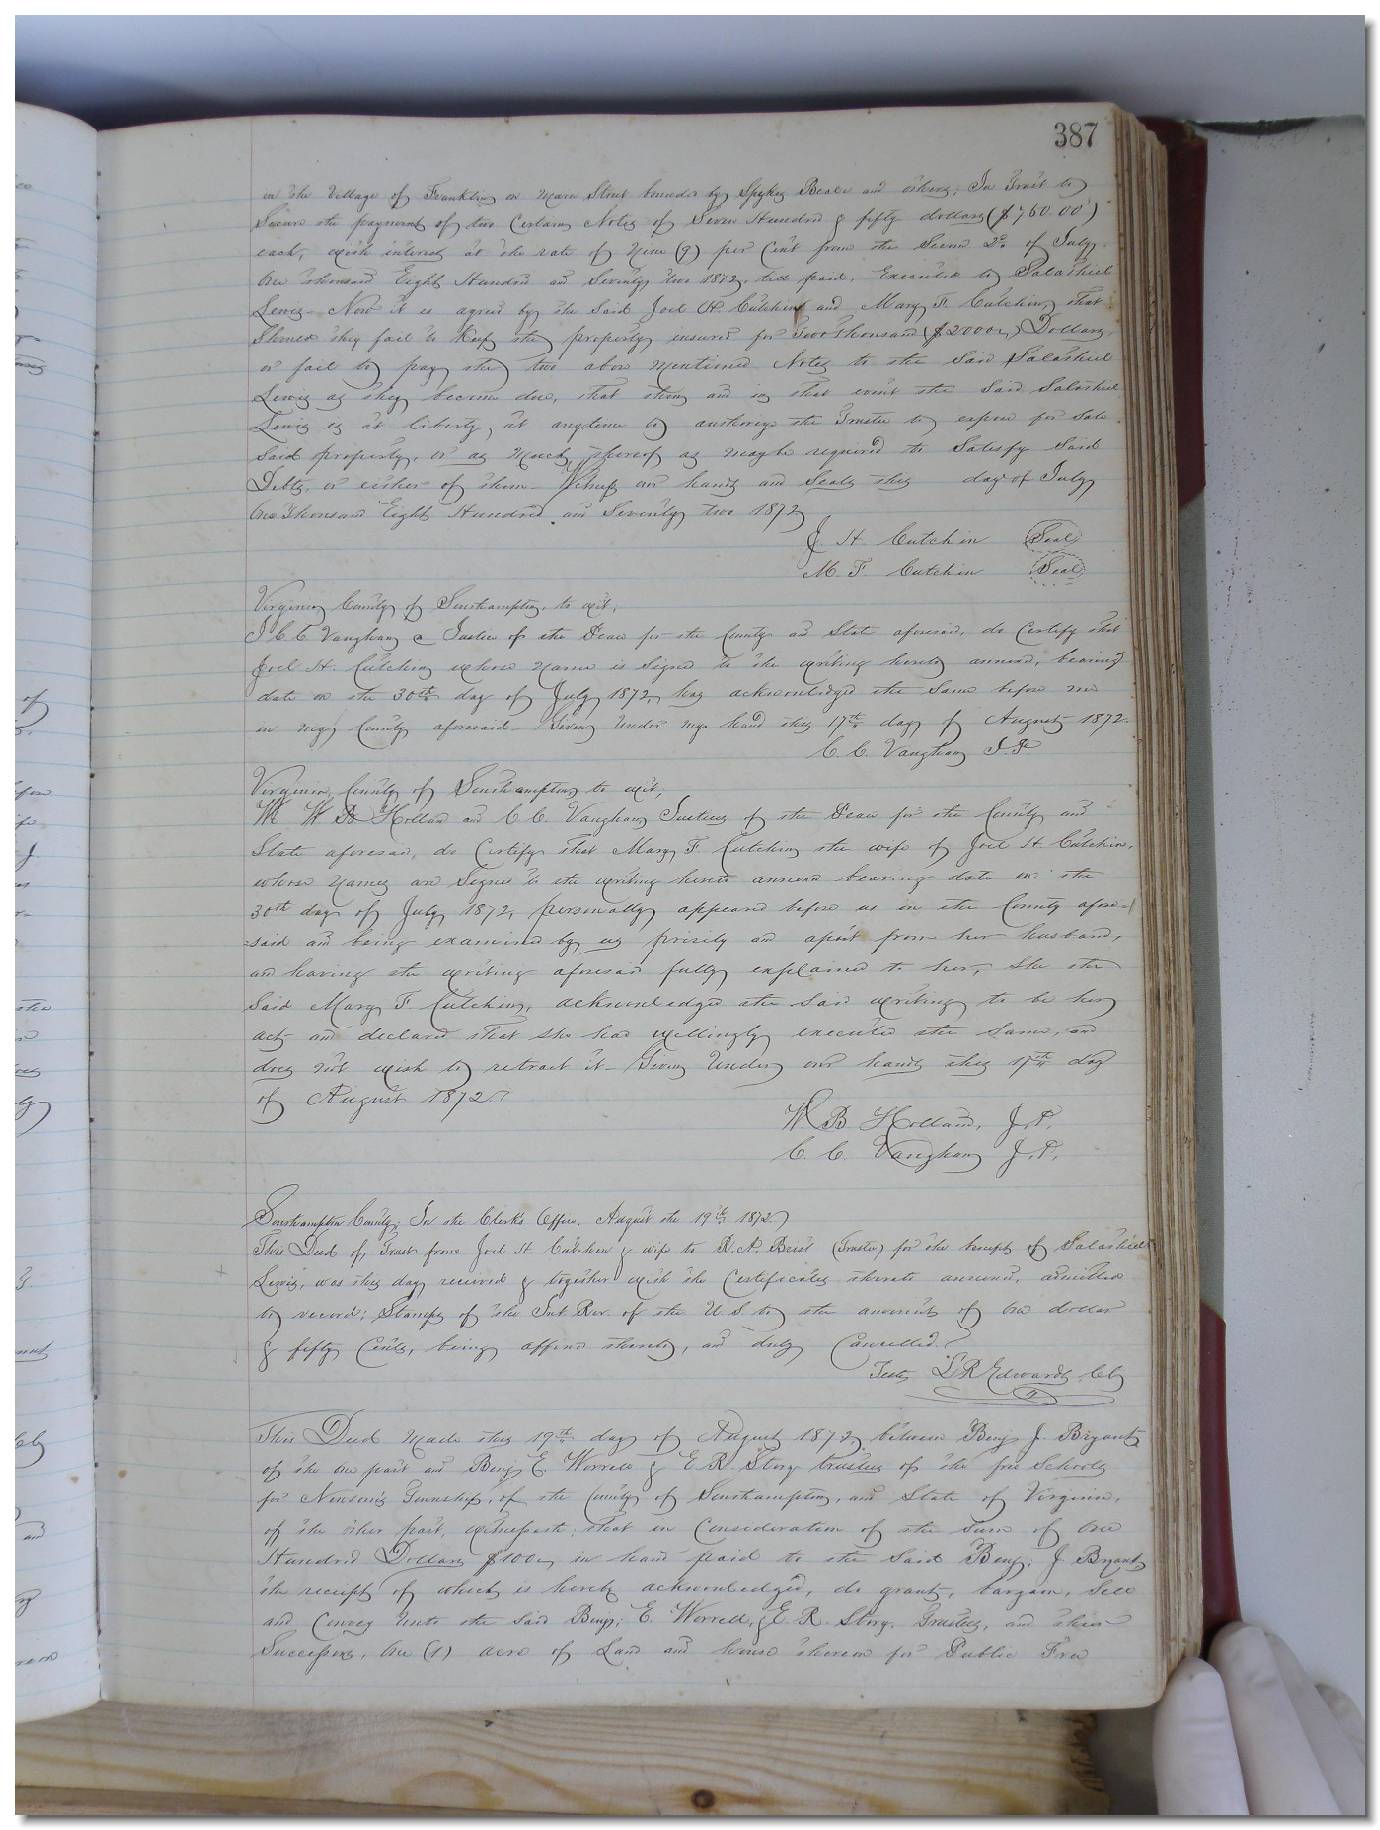 387
in the Village of Franklin on Main Street bounded by Spykes Beale and others; In Trust to
Secure the payment of two Certain Notes of Seven Hundred & fifty dollars ($750.00)
each, with interest at the rate of Nine (9) per Cent from the Second 2d. of July.
One thousand Eight Hundred and Seventy two 1872, till paid, Executed to Salathiel
Lewis. Now it is agreed by the said Joel H. Cutchin and Mary F. Cutchin, that
Should they fail to Keep the property insured for Two Thousand ($2000) Dollars,
or fail to pay the two above mentioned Notes to the said Salathiel
Lewis as they become due, that then and in that event the said Salathiel
Lewis is at liberty, at anytime to authorize the Trustee to expose for Sale
Said property, or as Much thereof as may be required to Satisfy Said
Debts, or either of them. Witness our hands and Seals this day of July
One Thousand Eight Hundred and Seventy two 1872
J. H. Cutchin Seal
M. F. Cutchin Seal
Virginia, County of Southampton, to wit,
I C. C. Vaughan a Justice of the Peace for the County and State aforesaid, do Certify that
Joel H. Cutchin whose Name is Signed to the writing hereto annexed, bearing
date on the 30th day of July 1872, has acknowledged the Same before me
in my County aforesaid. Given Under my hand this 17th day of August 1872.
C. C. Vaughan J. P.
Virginia, County of Southampton to wit,
We W B Holland and C. C. Vaughan Justices of the Peace for the County and
State aforesaid, do Certify that Mary F. Cutchin the wife of Joel H. Cutchin,
whose Names are Signed to the writing hereto annexed bearing date on the
30th day of July 1872, personally appeared before us in the County afore-
=said and being examined by us privily and apart from her husband,
and having the writing aforesaid fully explained to her, She the
Said Mary F. Cutchin, acknowledged the Said writing to be her
act and declared that She had willingly executed the Same, and
does not wish to retract it. Given Under our hands this 17th day
of August 1872.
W. B Holland, J. P.
C. C. Vaughan J. P.
Southampton County, In the Clerk's Office, August the 19th 1872.
This Deed of Trust from Joel H. Cutchin & wife to R. A. (Trustee) for the benefit of Salathiel
Lewis, was this day received & together with the Certificates thereto annexed, admitted
to record; Stamps of the Int. Rev. of the U S to the amount of One dollar
& fifty Cents, being affixed thereto, and duly Cancelled.
Teste, L R Edwards Clk
This Deed Made this 19th day of August 1872, between Benj. J. Bryant
of the one part and Benj. E. Worrell & E. R. Story trustees of the free Schools
for Township, of the County of Southampton, and State of Virginia,
of the other part, witnesseth, that in Consideration of the Sum of One
Hundred Dollars $100 in hand paid to the Said Benj. J. Bryant
the receipt of which is hereby acknowledged, do grant, bargain, Sell
and Convey Unto the Said Benj. E. Worrell, & E. R. Story, Trustees, and their
Successors, One (1) acre of Land and house thereon for Public Free